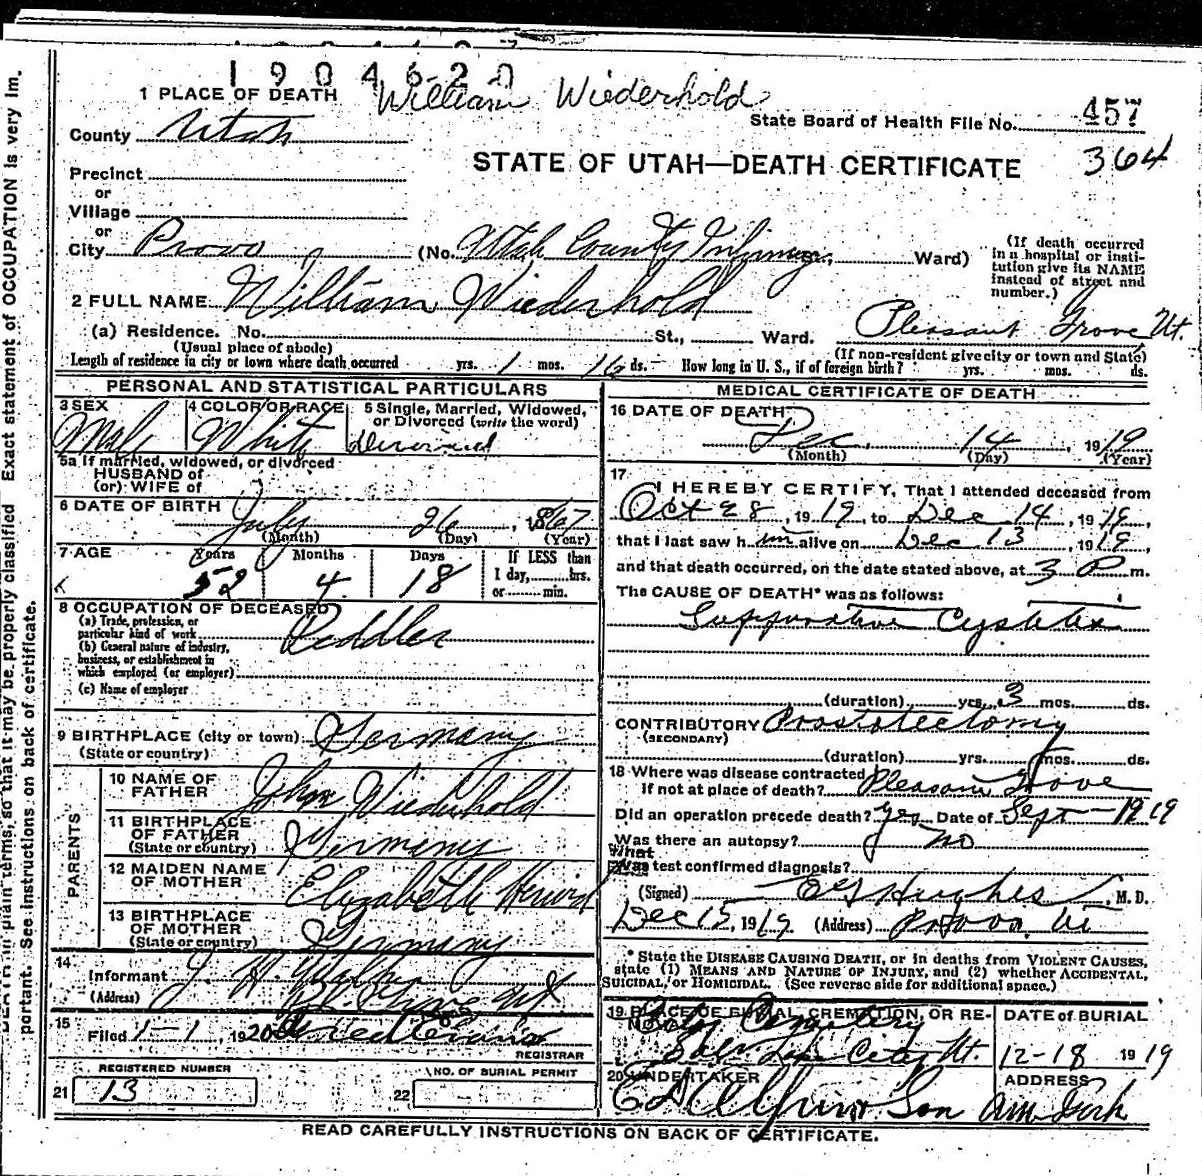 1904620
William Wiederhold
1 PLACE OF DEATH
State Board of Health File No. 457
County Utah
364
STATE OF UTAH—DEATH CERTIFICATE
Precinct
or
Village
or
City Provo (No. Utah County Infirmary, Ward)
(If death occurred in a hospital or institution give its NAME instead of street and number.)
2 FULL NAME William Wiederhold
(a) Residence. No. St., Ward. Pleasant Grove Ut.
(Usual place of abode) (If non-resident give city or town and State)
Length of residence in city or town where death occurred yrs. 1 mos. 16 ds. How long in U. S., if of foreign birth? yrs. mos. ds.
PERSONAL AND STATISTICAL PARTICULARS
3 SEX Male
4 COLOR OR RACE White
5 Single, Married, Widowed, or Divorced (write the word) Divorced
5a If married, widowed, or divorced
HUSBAND of
(or) WIFE of
6 DATE OF BIRTH July 26, 1867
(Month) (Day) (Year)
7 AGE Years Months Days If LESS than
52 4 18 1 day, hrs.
or min.
8 OCCUPATION OF DECEASED
(a) Trade, profession, or particular kind of work Peddler
(b) General nature of industry, business, or establishment in which employed (or employer)
(c) Name of employer
9 BIRTHPLACE (city or town) Germany
(State or country)
PARENTS
10 NAME OF FATHER John Wiederhold
11 BIRTHPLACE OF FATHER Germany
(State or country)
12 MAIDEN NAME OF MOTHER Elizabeth
13 BIRTHPLACE OF MOTHER Germany
(State or country)
14
Informant J. H. Walker
(Address) Pl. Grove Ut
15
Filed 1-1, 1920
REGISTRAR
REGISTERED NUMBER
21 13
NO. OF BURIAL PERMIT
22
MEDICAL CERTIFICATE OF DEATH
16 DATE OF DEATH
Dec. 14, 1919
(Month) (Day) (Year)
17
I HEREBY CERTIFY, That I attended deceased from
Oct 28, 1919, to Dec 14, 1919,
that I last saw him alive on Dec 13, 1919,
and that death occurred, on the date stated above, at 3 P m.
The CAUSE OF DEATH* was as follows:
Suppurative Cystitis
(duration) yrs. 3 mos. ds.
CONTRIBUTORY Prostatectomy
(SECONDARY)
(duration) yrs. mos. ds.
18 Where was disease contracted
If not at place of death? Pleasant Grove
Did an operation precede death? yes Date of Sept - 1919
Was there an autopsy? no
What test confirmed diagnosis?
(Signed) Hughes, M. D.
Dec 15, 1919. (Address) Provo. Ut
* State the DISEASE CAUSING DEATH, or in deaths from VIOLENT CAUSES,
state (1) MEANS AND NATURE OF INJURY, and (2) whether ACCIDENTAL,
SUICIDAL, or HOMICIDAL. (See reverse side for additional space.)
19 PLACE OF BURIAL, CREMATION, OR REMOVAL
City Cemetery
Salt Lake City Ut.
DATE of BURIAL
12-18 1919
20 UNDERTAKER
Son
ADDRESS
Am Fork
READ CAREFULLY INSTRUCTIONS ON BACK OF CERTIFICATE.
DEATH in plain terms, so that it may be properly classified Exact statement of OCCUPATION is very im-
portant. See instructions on back of certificate.